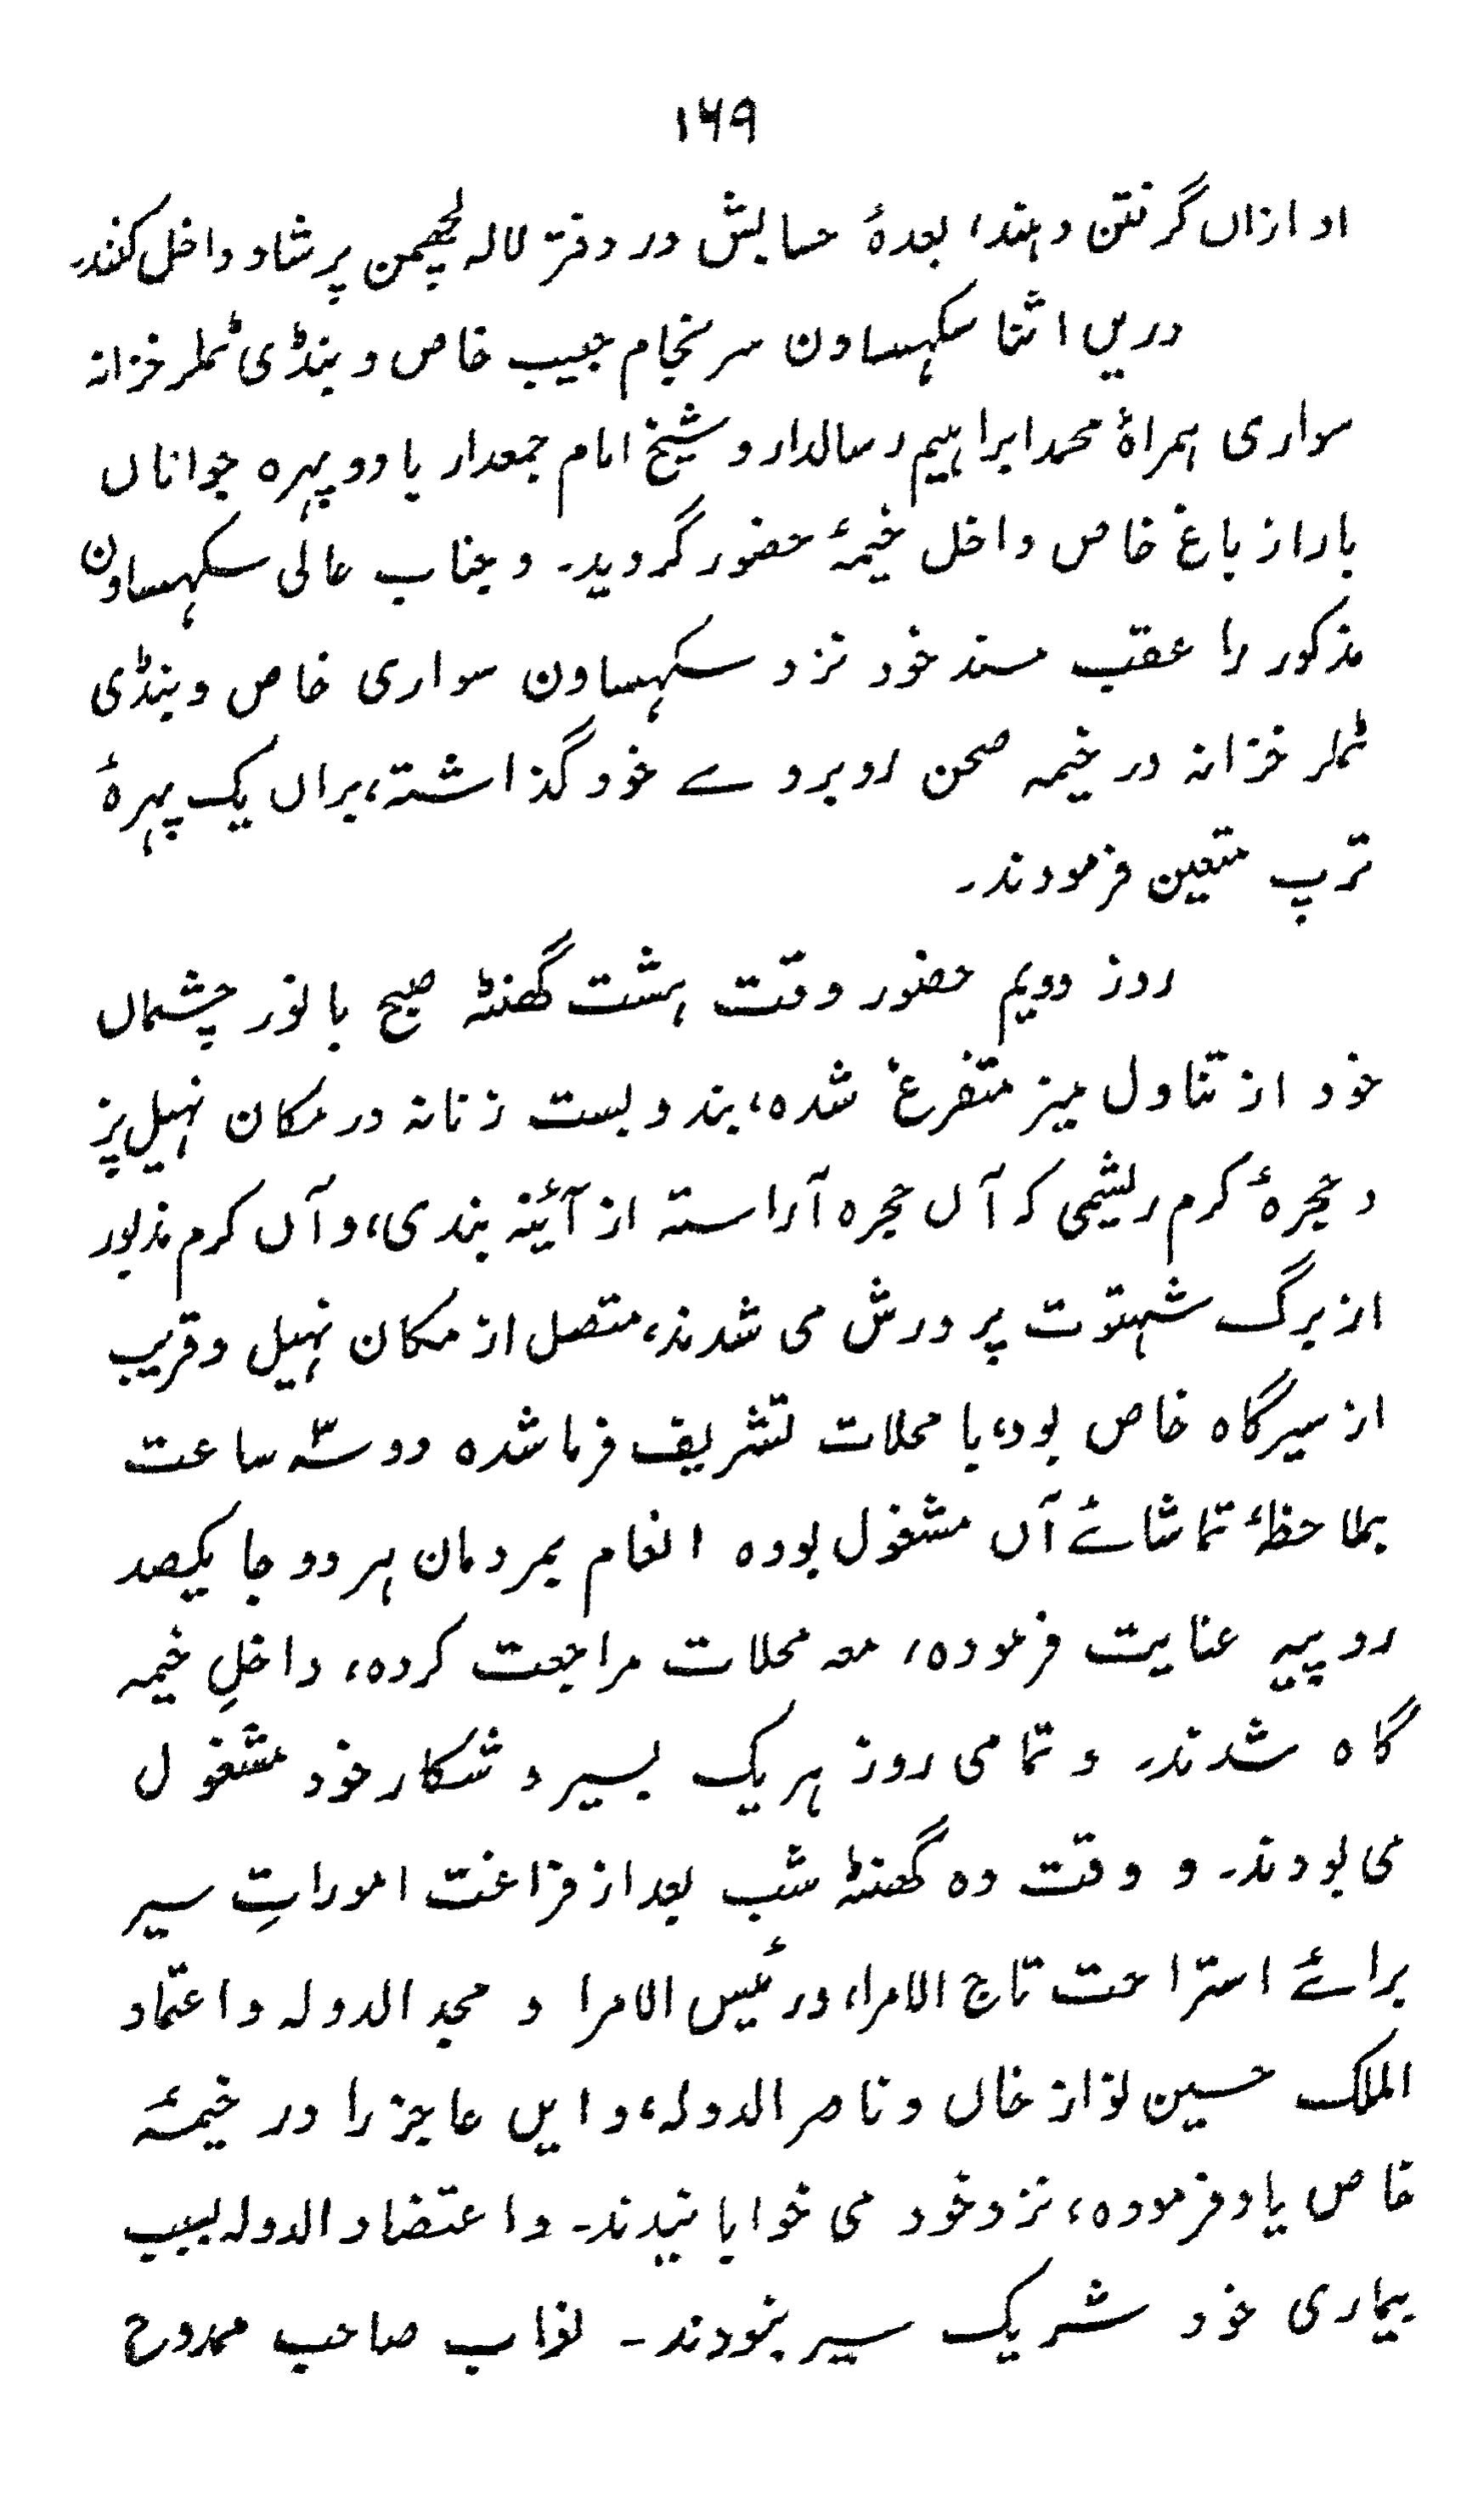 ۱۶۹
او ازاں گرفتن دہند، بعدہٗ حسابش در دفتر لالہ لچھمن پرشاد داخل کنند۔
دریں اثنا سکہساون سرنجام جیب خاص و بنڈی ٹملر خزانہ
سواری ہمراہٗ محمد ابراہیم رسالدار و شیخ امام جمعدار با دو پہرہ جواناں
بار از باغ خاص داخل خیمۂ حضور گردید۔ و جناب عالی سکہساون
مذکور را عقب مسند خود نزد سکہساون سواری خاص و بنڈی
ٹملر خزانہ در خیمہ صحن روبروے خود گذاشتہ، براں یک پہرۂ
ترپ متعین فرمودند۔
روز دویم حضور وقت ہشت گھنٹہ صبح با نور چشماں
خود از تناول میز متفرغ شدہ، بندوبست زنانہ در مکان نہیل پز
و حجرۂ کرم ریشمی کہ آں حجرہ آراستہ از آئینہ بندی، و آں کرم مذبور
از برگ شہتوت پرورش می شدند، متصل از مکان نہیل و قریب
از سیرگاہ خاص بود، با محلات تشریف فرما شدہ دو سہ ساعت
بملاحظۂ تماشائے آں مشغول بودہ انعام بمردمان ہر دو جا یکصد
روپیہ عنایت فرمودہ، معہ محلات مراجعت کردہ، داخلِ خیمہ
گاہ شدند۔ و تمامی روز ہر یک بسیر و شکار خود مشغول
می بودند۔ و وقت دہ گھنٹہ شب بعد از فراغت اموراتِ سیر
برائے استراحت تاج الامراء و رئیس الامرا و مجد الدولہ و اعتماد
الملک حسین نواز خاں و ناصر الدولہ، و ایں عاجز را در خیمۂ
خاص یاد فرمودہ، نزد خود می خوابانیدند۔ و اعتضاد الدولہ بسبب
بیماری خود شریک سیر نبودند۔ نواب صاحب ممدوح